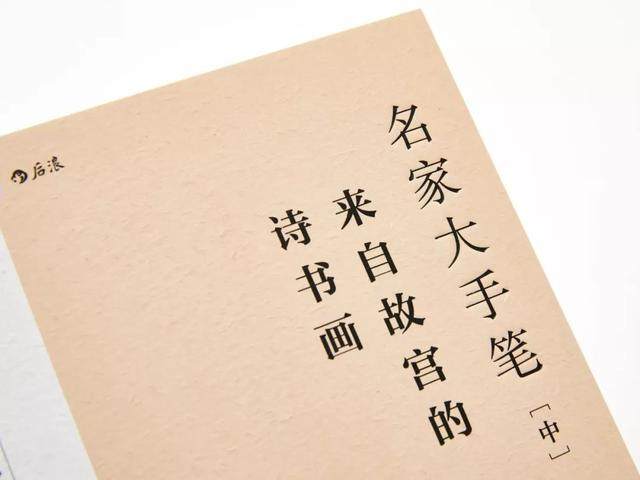 后浪
名家大手笔[中]
来自故宫的
诗书画